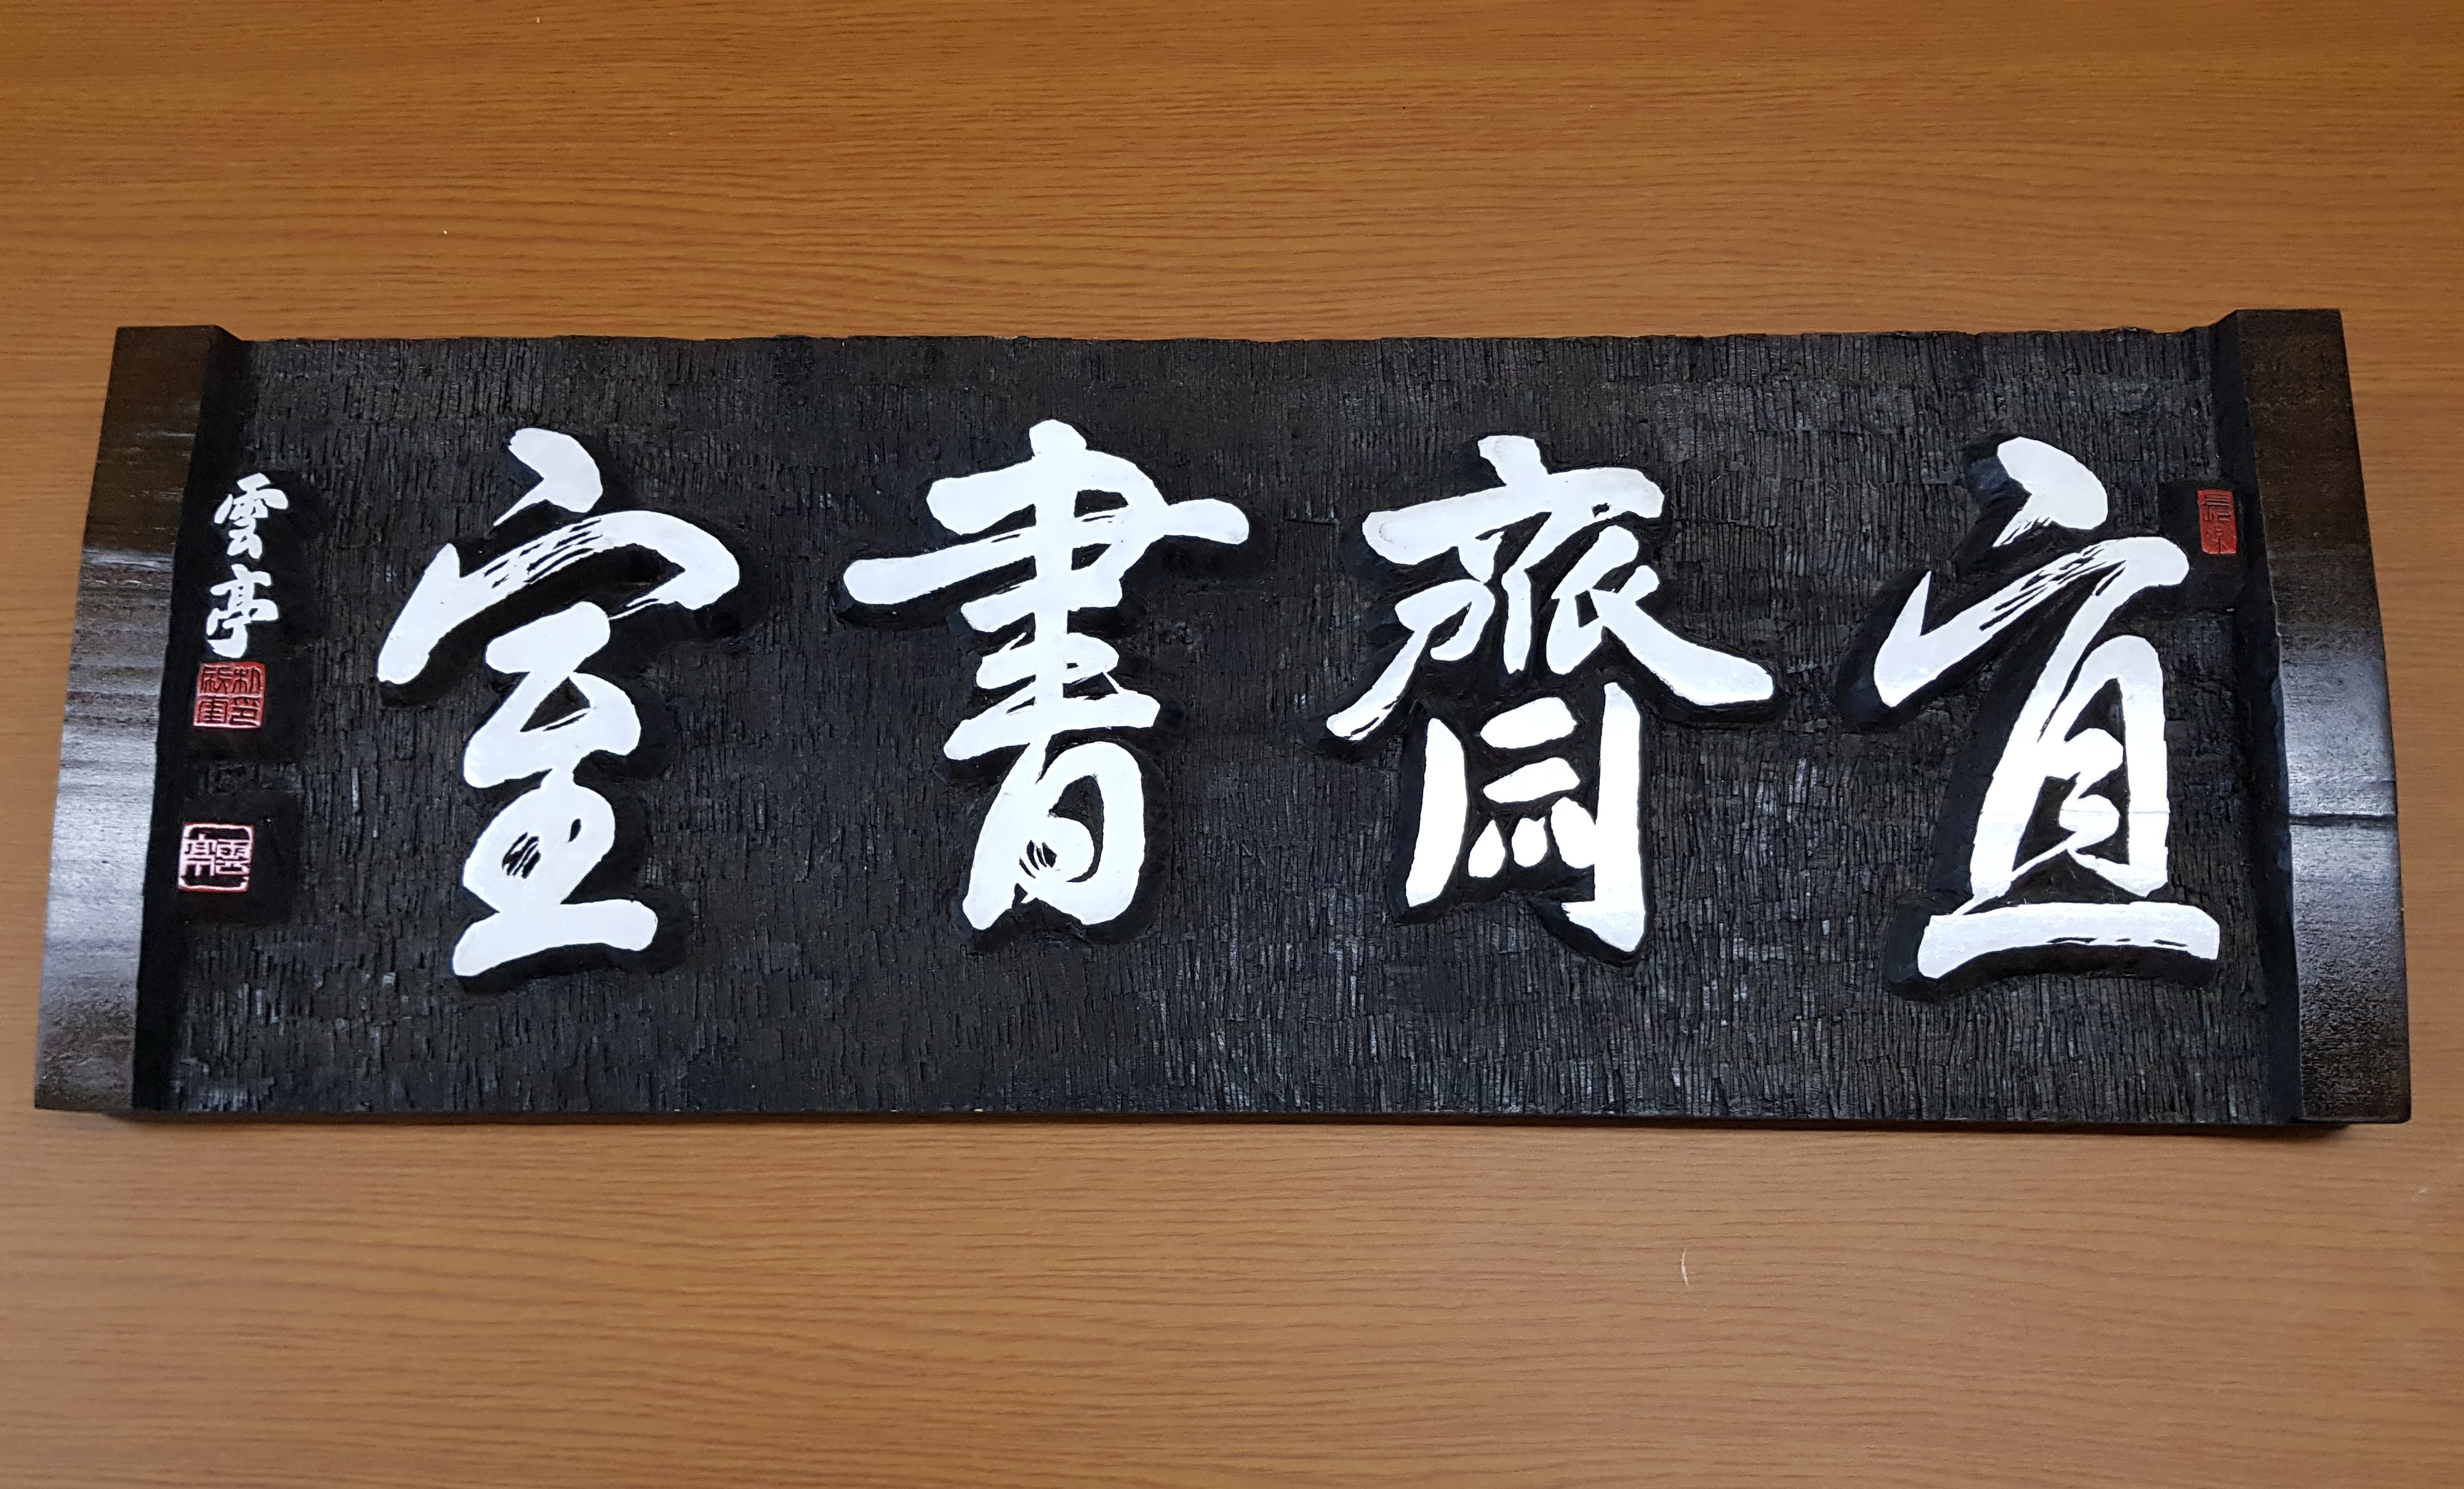 宜齋書室
雲亭